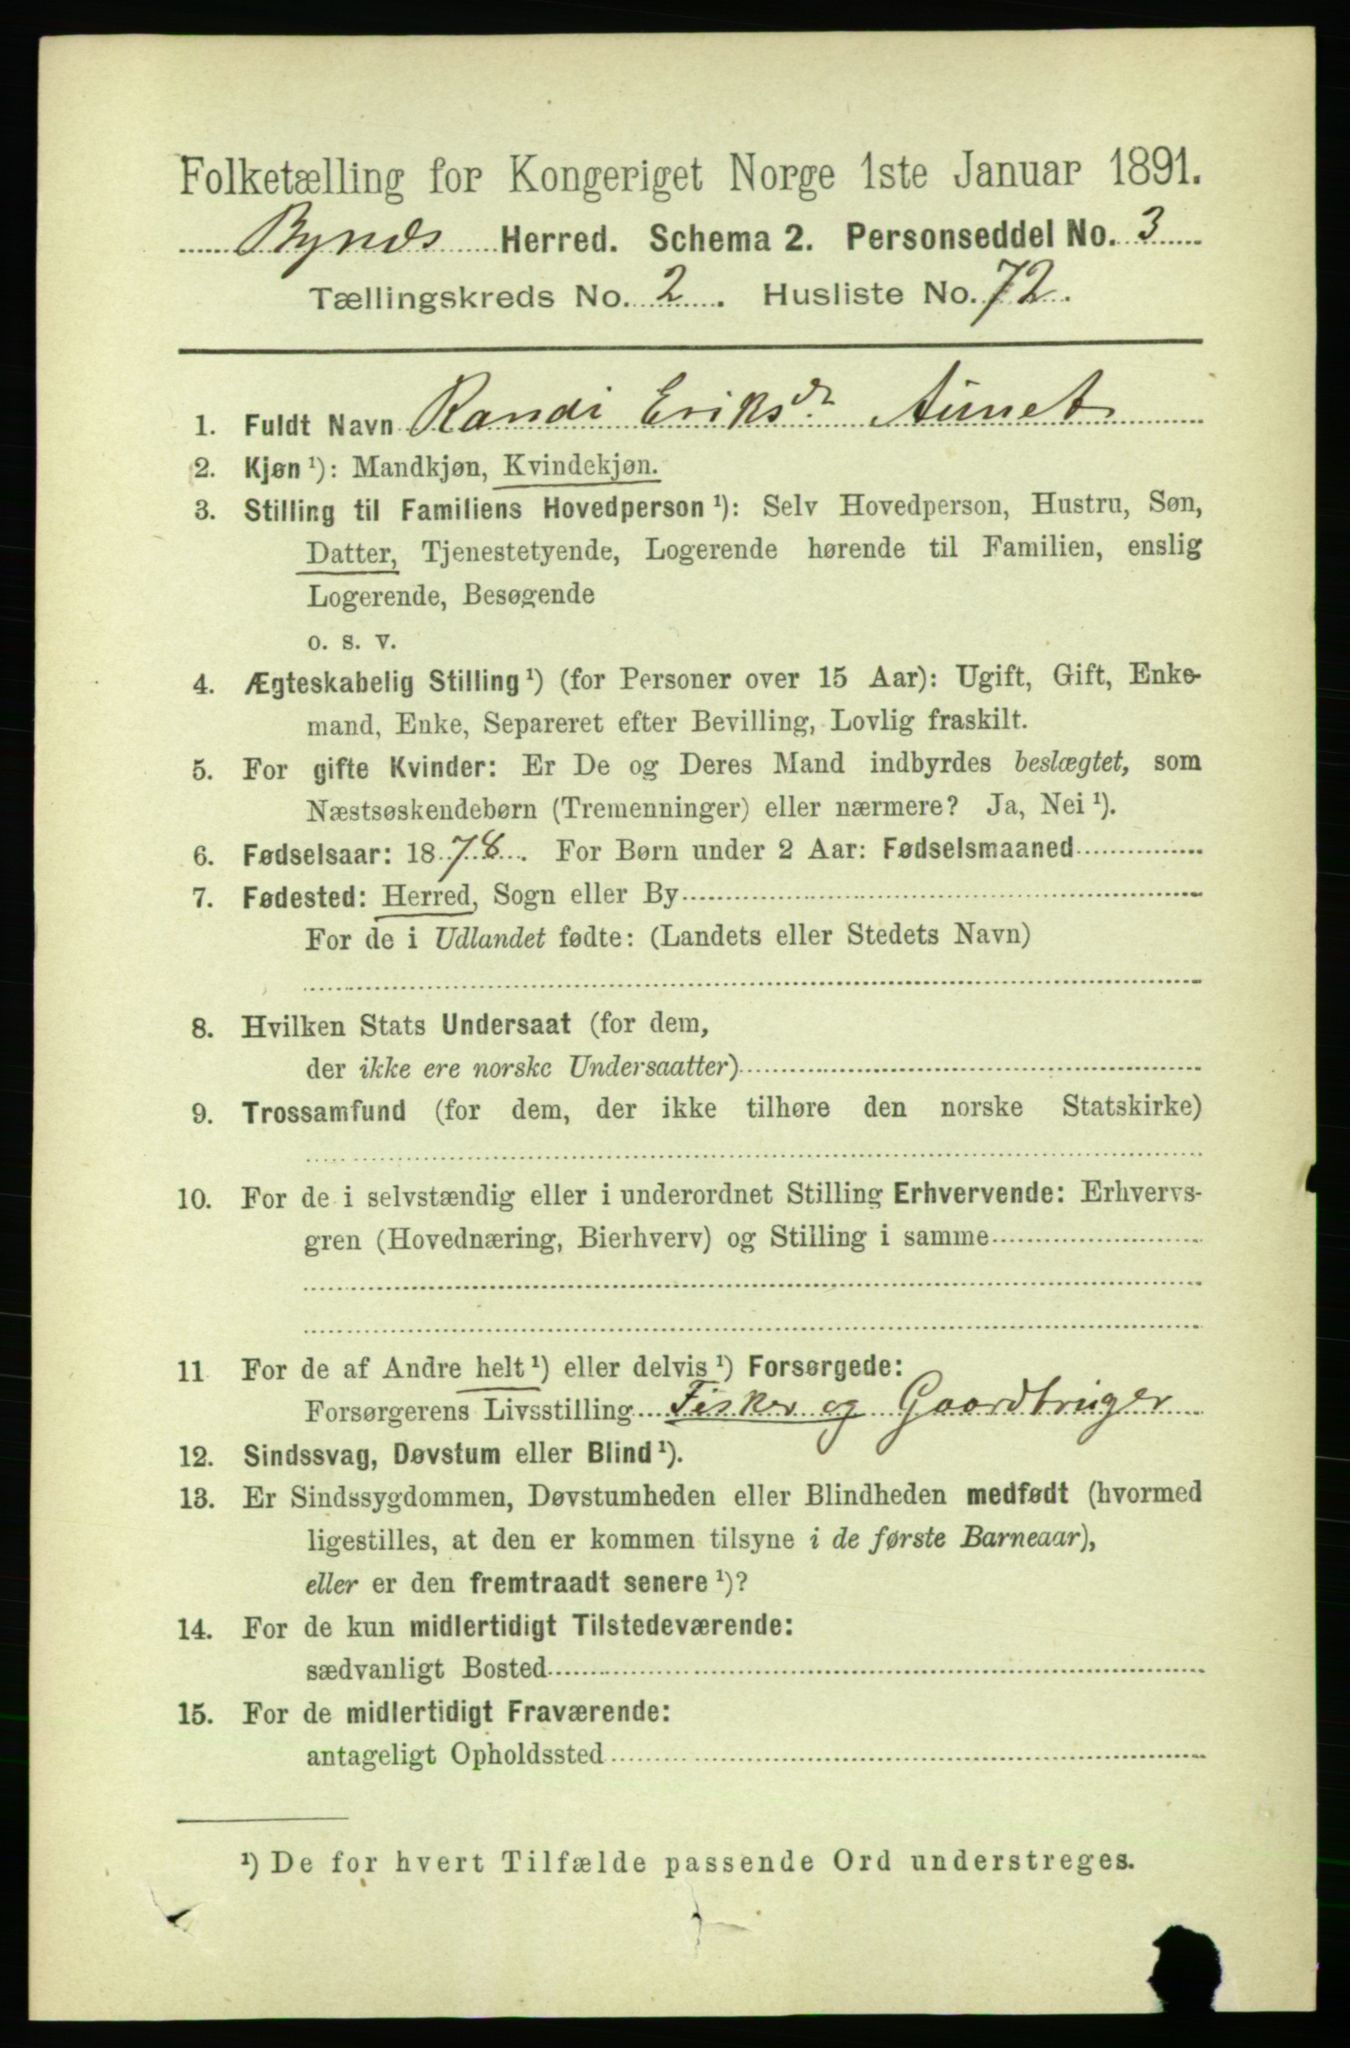 Folketælling for Kongeriget Norge 1ste Januar 1891.
Bynæs Herred. Schema 2. Personseddel No. 3
Tællingskreds No. 2. Husliste No. 72.
1. Fuldt Navn Randi Eriksdr Aunet
2. Kjøn ¹): Mandkjøn, Kvindekjøn.
3. Stilling til Familiens Hovedperson ¹): Selv Hovedperson, Hustru, Søn,
Datter, Tjenestetyende, Logerende hørende til Familien, enslig
Logerende, Besøgende
o. s. v.
4. Ægteskabelig Stilling ¹) (for Personer over 15 Aar): Ugift, Gift, Enke-
mand, Enke, Separeret efter Bevilling, Lovlig fraskilt.
5. For gifte Kvinder: Er De og Deres Mand indbyrdes beslægtet, som
Næstsøskendebørn (Tremenninger) eller nærmere? Ja, Nei ¹).
6. Fødselsaar: 1878. For Børn under 2 Aar: Fødselsmaaned
7. Fødested: Herred, Sogn eller By
For de i Udlandet fødte: (Landets eller Stedets Navn)
8. Hvilken Stats Undersaat (for dem,
der ikke ere norske Undersaatter)
9. Trossamfund (for dem, der ikke tilhøre den norske Statskirke)
10. For de i selvstændig eller i underordnet Stilling Erhvervende: Erhvervs-
gren (Hovednæring, Bierhverv) og Stilling i samme
11 For de af Andre helt ¹) eller delvis ¹) Forsørgede:
Forsørgerens Livsstilling Fisker og Gaardbruger
12. Sindssvag, Døvstum eller Blind ¹).
13. Er Sindssygdommen, Døvstumheden eller Blindheden medfødt (hvormed
ligestilles, at den er kommen tilsyne i de første Barneaar),
eller er den fremtraadt senere ¹)?
14. For de kun midlertidigt Tilstedeværende:
sædvanligt Bosted
15. For de midlertidigt Fraværende:
antageligt Opholdssted
¹) De for hvert Tilfælde passende Ord understreges.